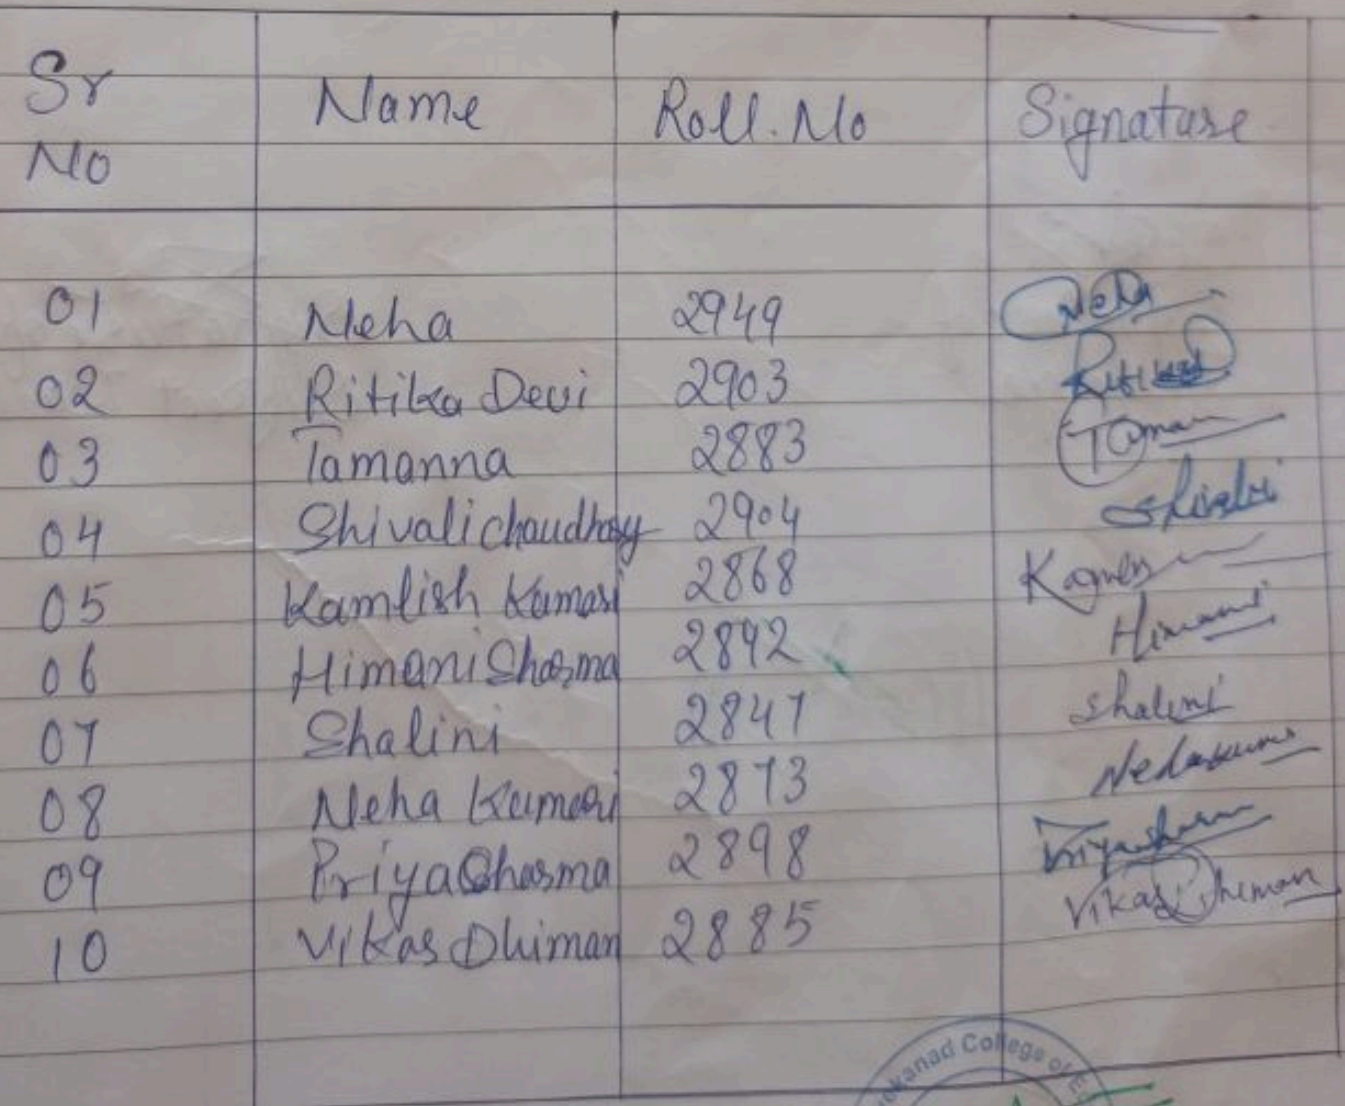 Sr No Name Roll. No Signature
01 Neha 2949 Neha
02 Ritika Devi 2903 Ritika
03 Tamanna 2883 Taman
04 Shivali chaudhary 2904 Shivali
05 Kamlish Kumari 2868
06 Himani Sharma 2892 Himani
07 Shalini 2847 Shalini
08 Neha Kumari 2873
09 Priya Sharma 2898 Priya Sharma
10 Vikas Dhiman 2885 Vikas Dhiman
College of